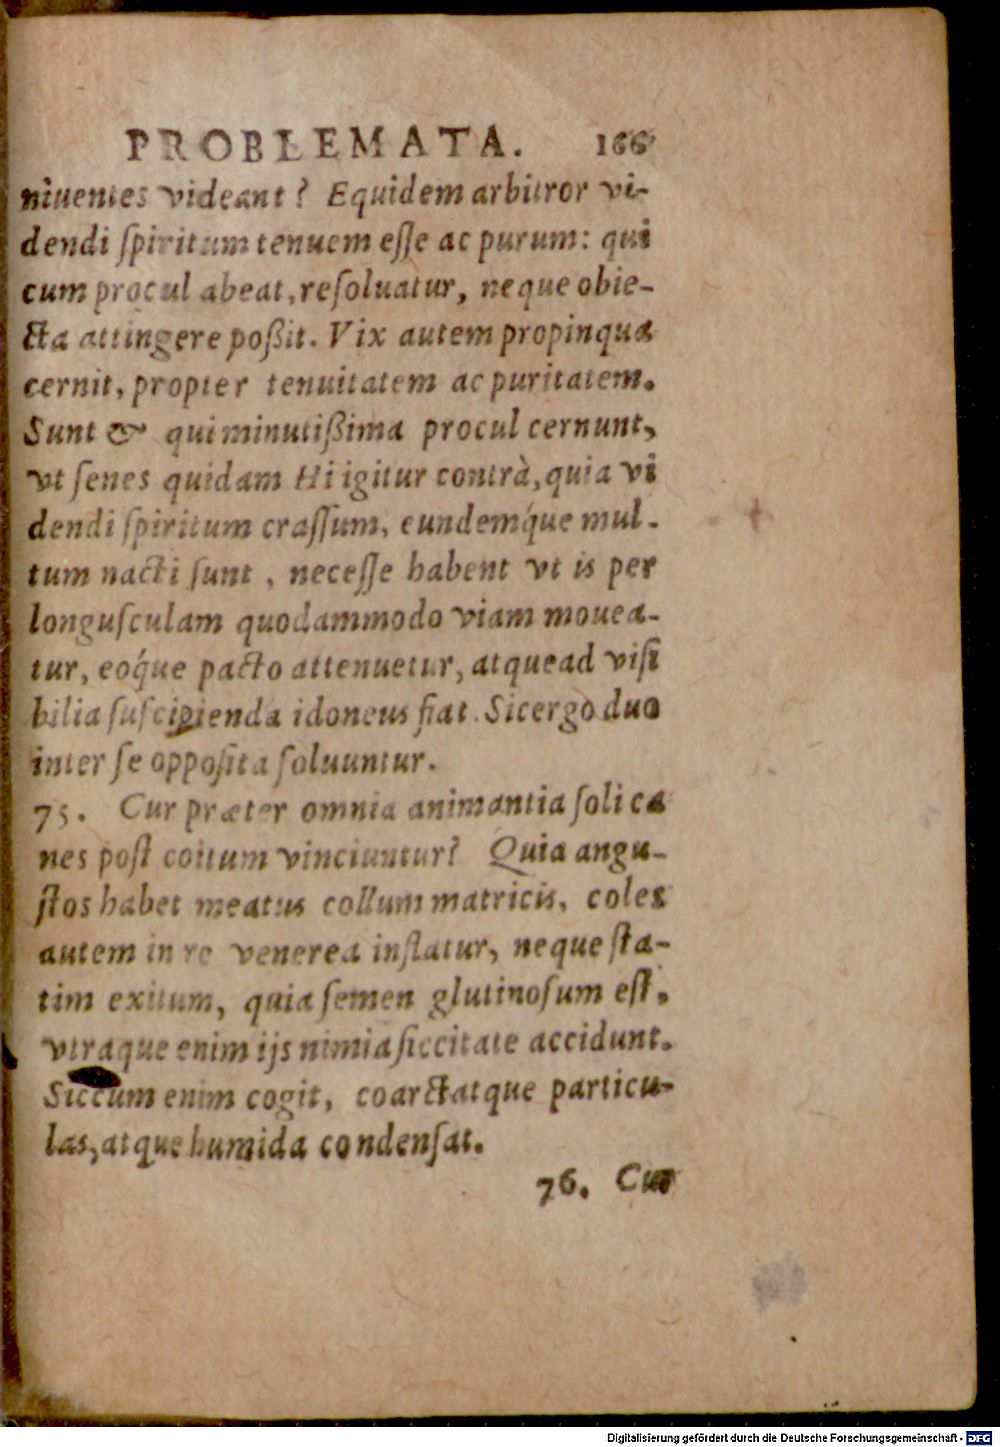 PROBLEMATA. 166
niuentes videant? Equidem arbitror vi-
dendi ſpiritum tenuem eſſe ac purum: qui
cum procul abeat, reſoluatur, neque obie-
cta attingere poßit. Vix autem propinqua
cernit, propter tenuitatem ac puritatem.
Sunt & qui minutißima procul cernunt,
vt ſenes quidam Hi igitur contrà, quia vi
dendi ſpiritum craſſum, eundemq́ue mul-
tum nacti ſunt, neceſſe habent vt is per
longuſculam quodammodo viam mouea-
tur, eoq́ue pacto attenuetur, atque ad viſi
bilia ſuſcipienda idoneus fiat. Sic ergo duo
inter ſe oppoſita ſoluuntur.
75. Cur præter omnia animantia ſoli ca
nes poſt coitum vinciuntur? Quia angu-
ſtos habet meatus collum matricis, coles
autem in re venerea inflatur, neque ſta-
tim exitum, quia ſemen glutinoſum eſt.
vtraque enim ijs nimia ſiccitate accidunt.
Siccum enim cogit, coarctatque particu-
las, atque humida condenſat.
76. Cur
Digitalisierung gefördert durch die Deutsche Forschungsgemeinschaft - DFG